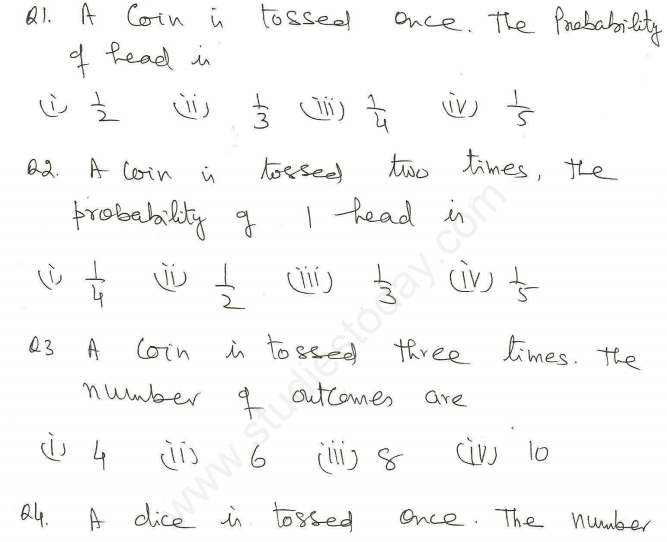 Q1. A Coin is tossed once. The Probability
of head is
(i) 1/2 (ii) 1/3 (iii) 1/4 (iv) 1/5
Q2. A Coin is tossed two times, the
probability of 1 head is
(i) 1/4 (ii) 1/2 (iii) 1/3 (iv) 1/5
Q3 A Coin is tossed three times. The
number of outcomes are
(i) 4 (ii) 6 (iii) 8 (iv) 10
Q4. A dice is tossed once. The number
www.studiestoday.com